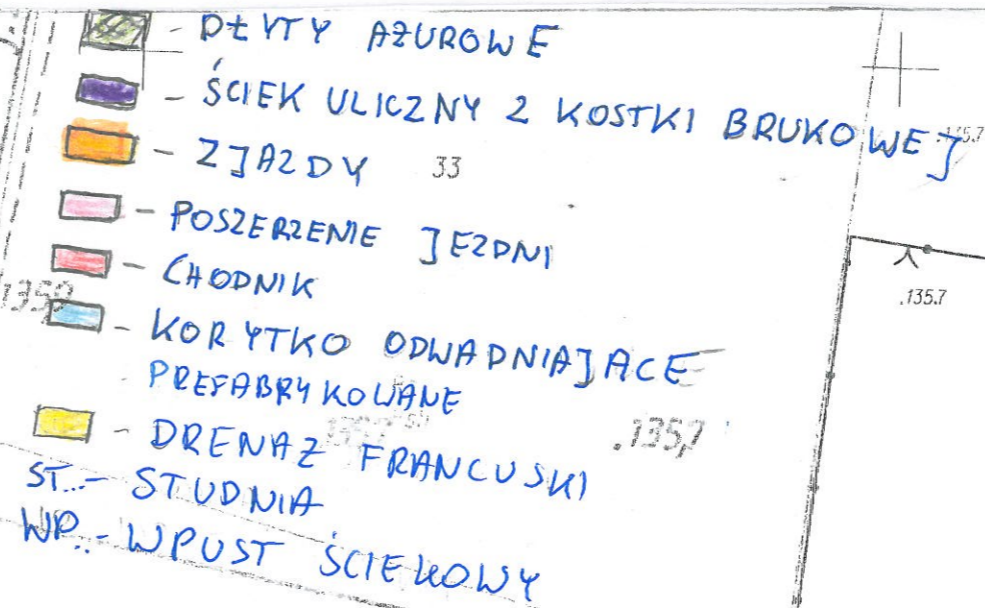 - PŁYTY AŻUROWE
- ŚCIEK ULICZNY Z KOSTKI BRUKOWEJ
135.7
- ZJAZDY 33
- POSZERZENIE JEZDNI
- CHODNIK
135.7
- KORYTKO ODWADNIAJACE
- PREFABRYKOWANE
- DRENAZ FRANCUSKI
.135,7
ST.. - STUDNIA
WP.. - WPUST ŚCIEKOWY